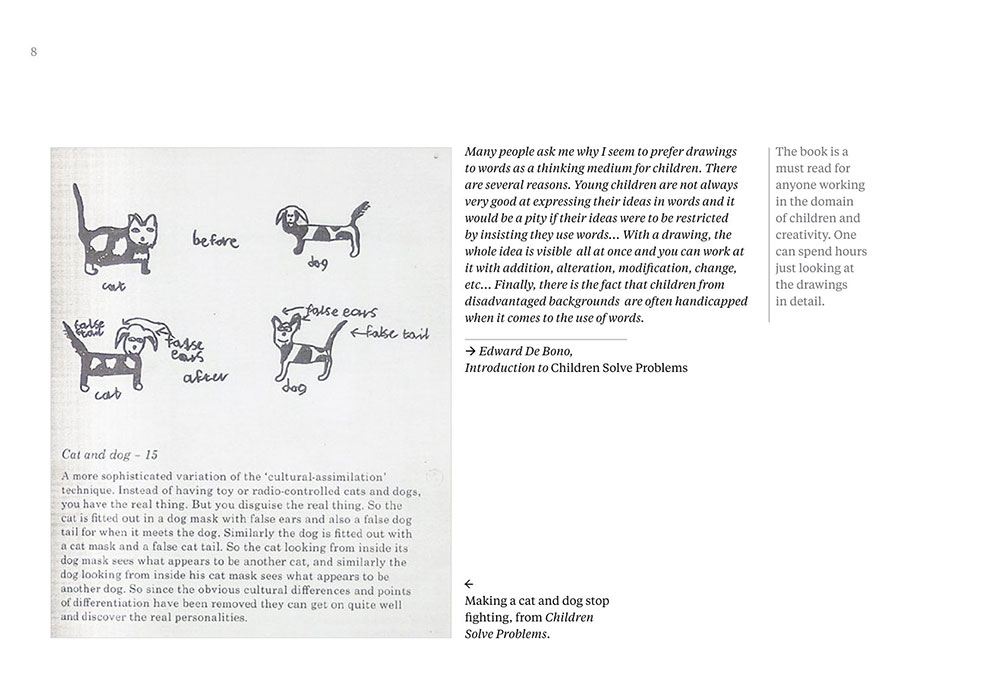 8
before
cat
dog
false
tail
false
ears
after
cat
false ears
false tail
dog
Cat and dog – 15
A more sophisticated variation of the ‘cultural-assimilation’
technique. Instead of having toy or radio-controlled cats and dogs,
you have the real thing. But you disguise the real thing. So the
cat is fitted out in a dog mask with false ears and also a false dog
tail for when it meets the dog. Similarly the dog is fitted out with
a cat mask and a false cat tail. So the cat looking from inside its
dog mask sees what appears to be another cat, and similarly the
dog looking from inside his cat mask sees what appears to be
another dog. So since the obvious cultural differences and points
of differentiation have been removed they can get on quite well
and discover the real personalities.
Many people ask me why I seem to prefer drawings
to words as a thinking medium for children. There
are several reasons. Young children are not always
very good at expressing their ideas in words and it
would be a pity if their ideas were to be restricted
by insisting they use words... With a drawing, the
whole idea is visible all at once and you can work at
it with addition, alteration, modification, change,
etc... Finally, there is the fact that children from
disadvantaged backgrounds are often handicapped
when it comes to the use of words.
→ Edward De Bono,
Introduction to Children Solve Problems
The book is a
must read for
anyone working
in the domain
of children and
creativity. One
can spend hours
just looking at
the drawings
in detail.
←
Making a cat and dog stop
fighting, from Children
Solve Problems.